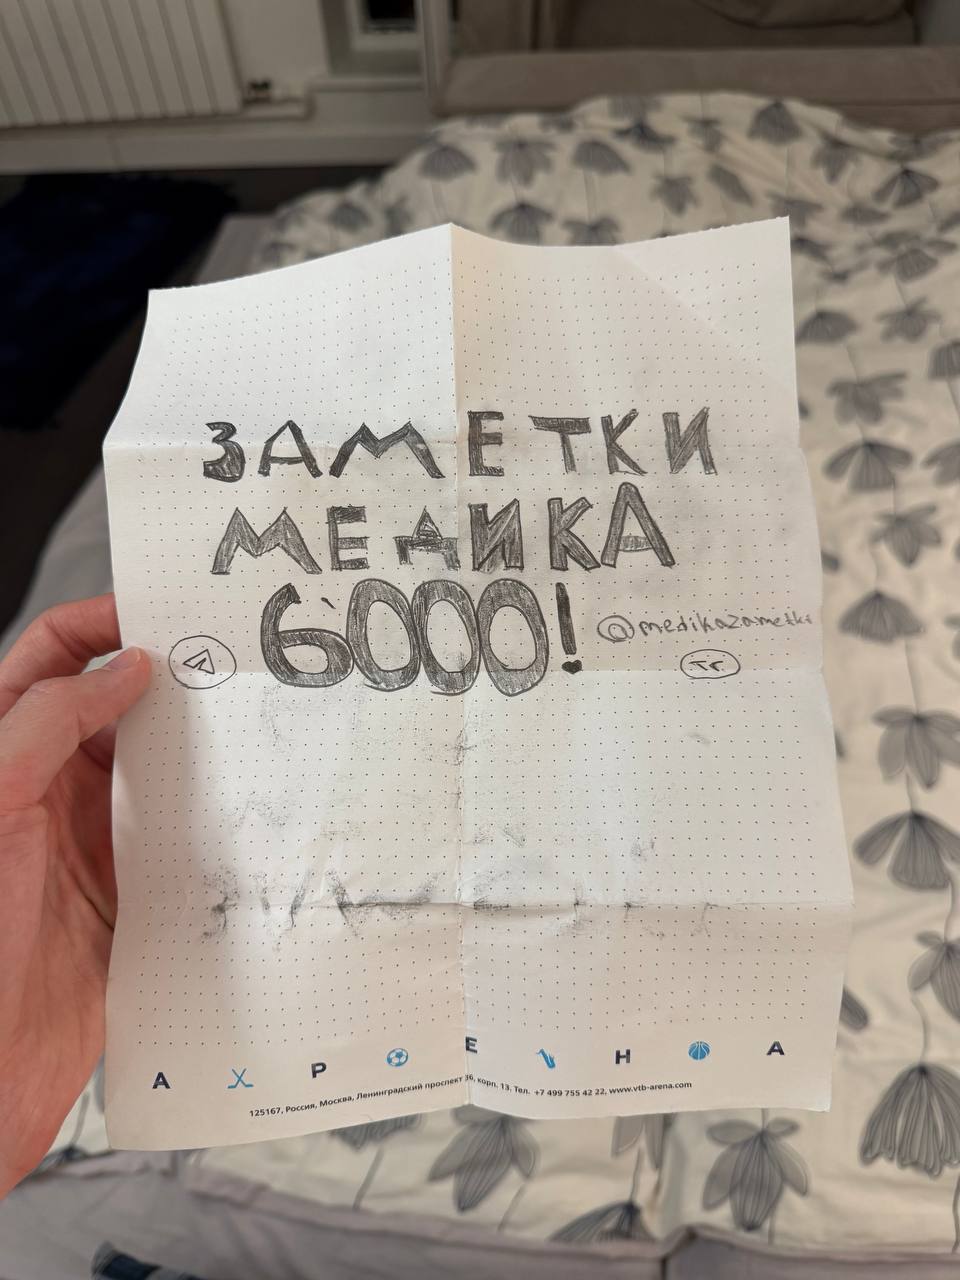 ЗАМЕТКИ
МЕДИКА
6000!
@medikazametki
Тг
А Р Е Н А
125167, Россия, Москва, Ленинградский проспект 36, корп. 13. Тел. +7 499 755 42 22, www.vtb-arena.com